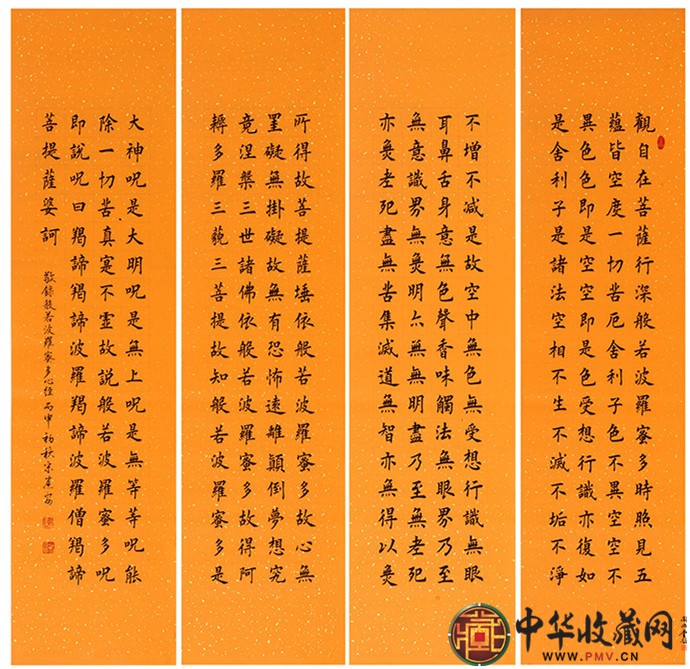 觀自在菩薩行深般若波羅蜜多時照見五
蘊皆空度一切苦厄舍利子色不異空空不
異色色即是空空即是色受想行識亦復如
是舍利子是諸法空相不生不滅不垢不淨
不增不減是故空中無色無受想行識無眼
耳鼻舌身意無色聲香味觸法無眼界乃至
無意識界無無明亦無無明盡乃至無老死
亦無老死盡無苦集滅道無智亦無得以無
所得故菩提薩埵依般若波羅蜜多故心無
罣礙無掛礙故無有恐怖遠離顛倒夢想究
竟涅槃三世諸佛依般若波羅蜜多故得阿
耨多羅三藐三菩提故知般若波羅蜜多是
大神呪是大明呪是無上呪是無等等呪能
除一切苦真寔不虛故説般若波羅蜜多呪
即說呪曰羯諦羯諦波羅羯諦波羅僧羯諦
菩提薩婆訶
敬錄般若波羅蜜多心經 丙申初秋宋
中华收藏网
WWW.PMV.CN